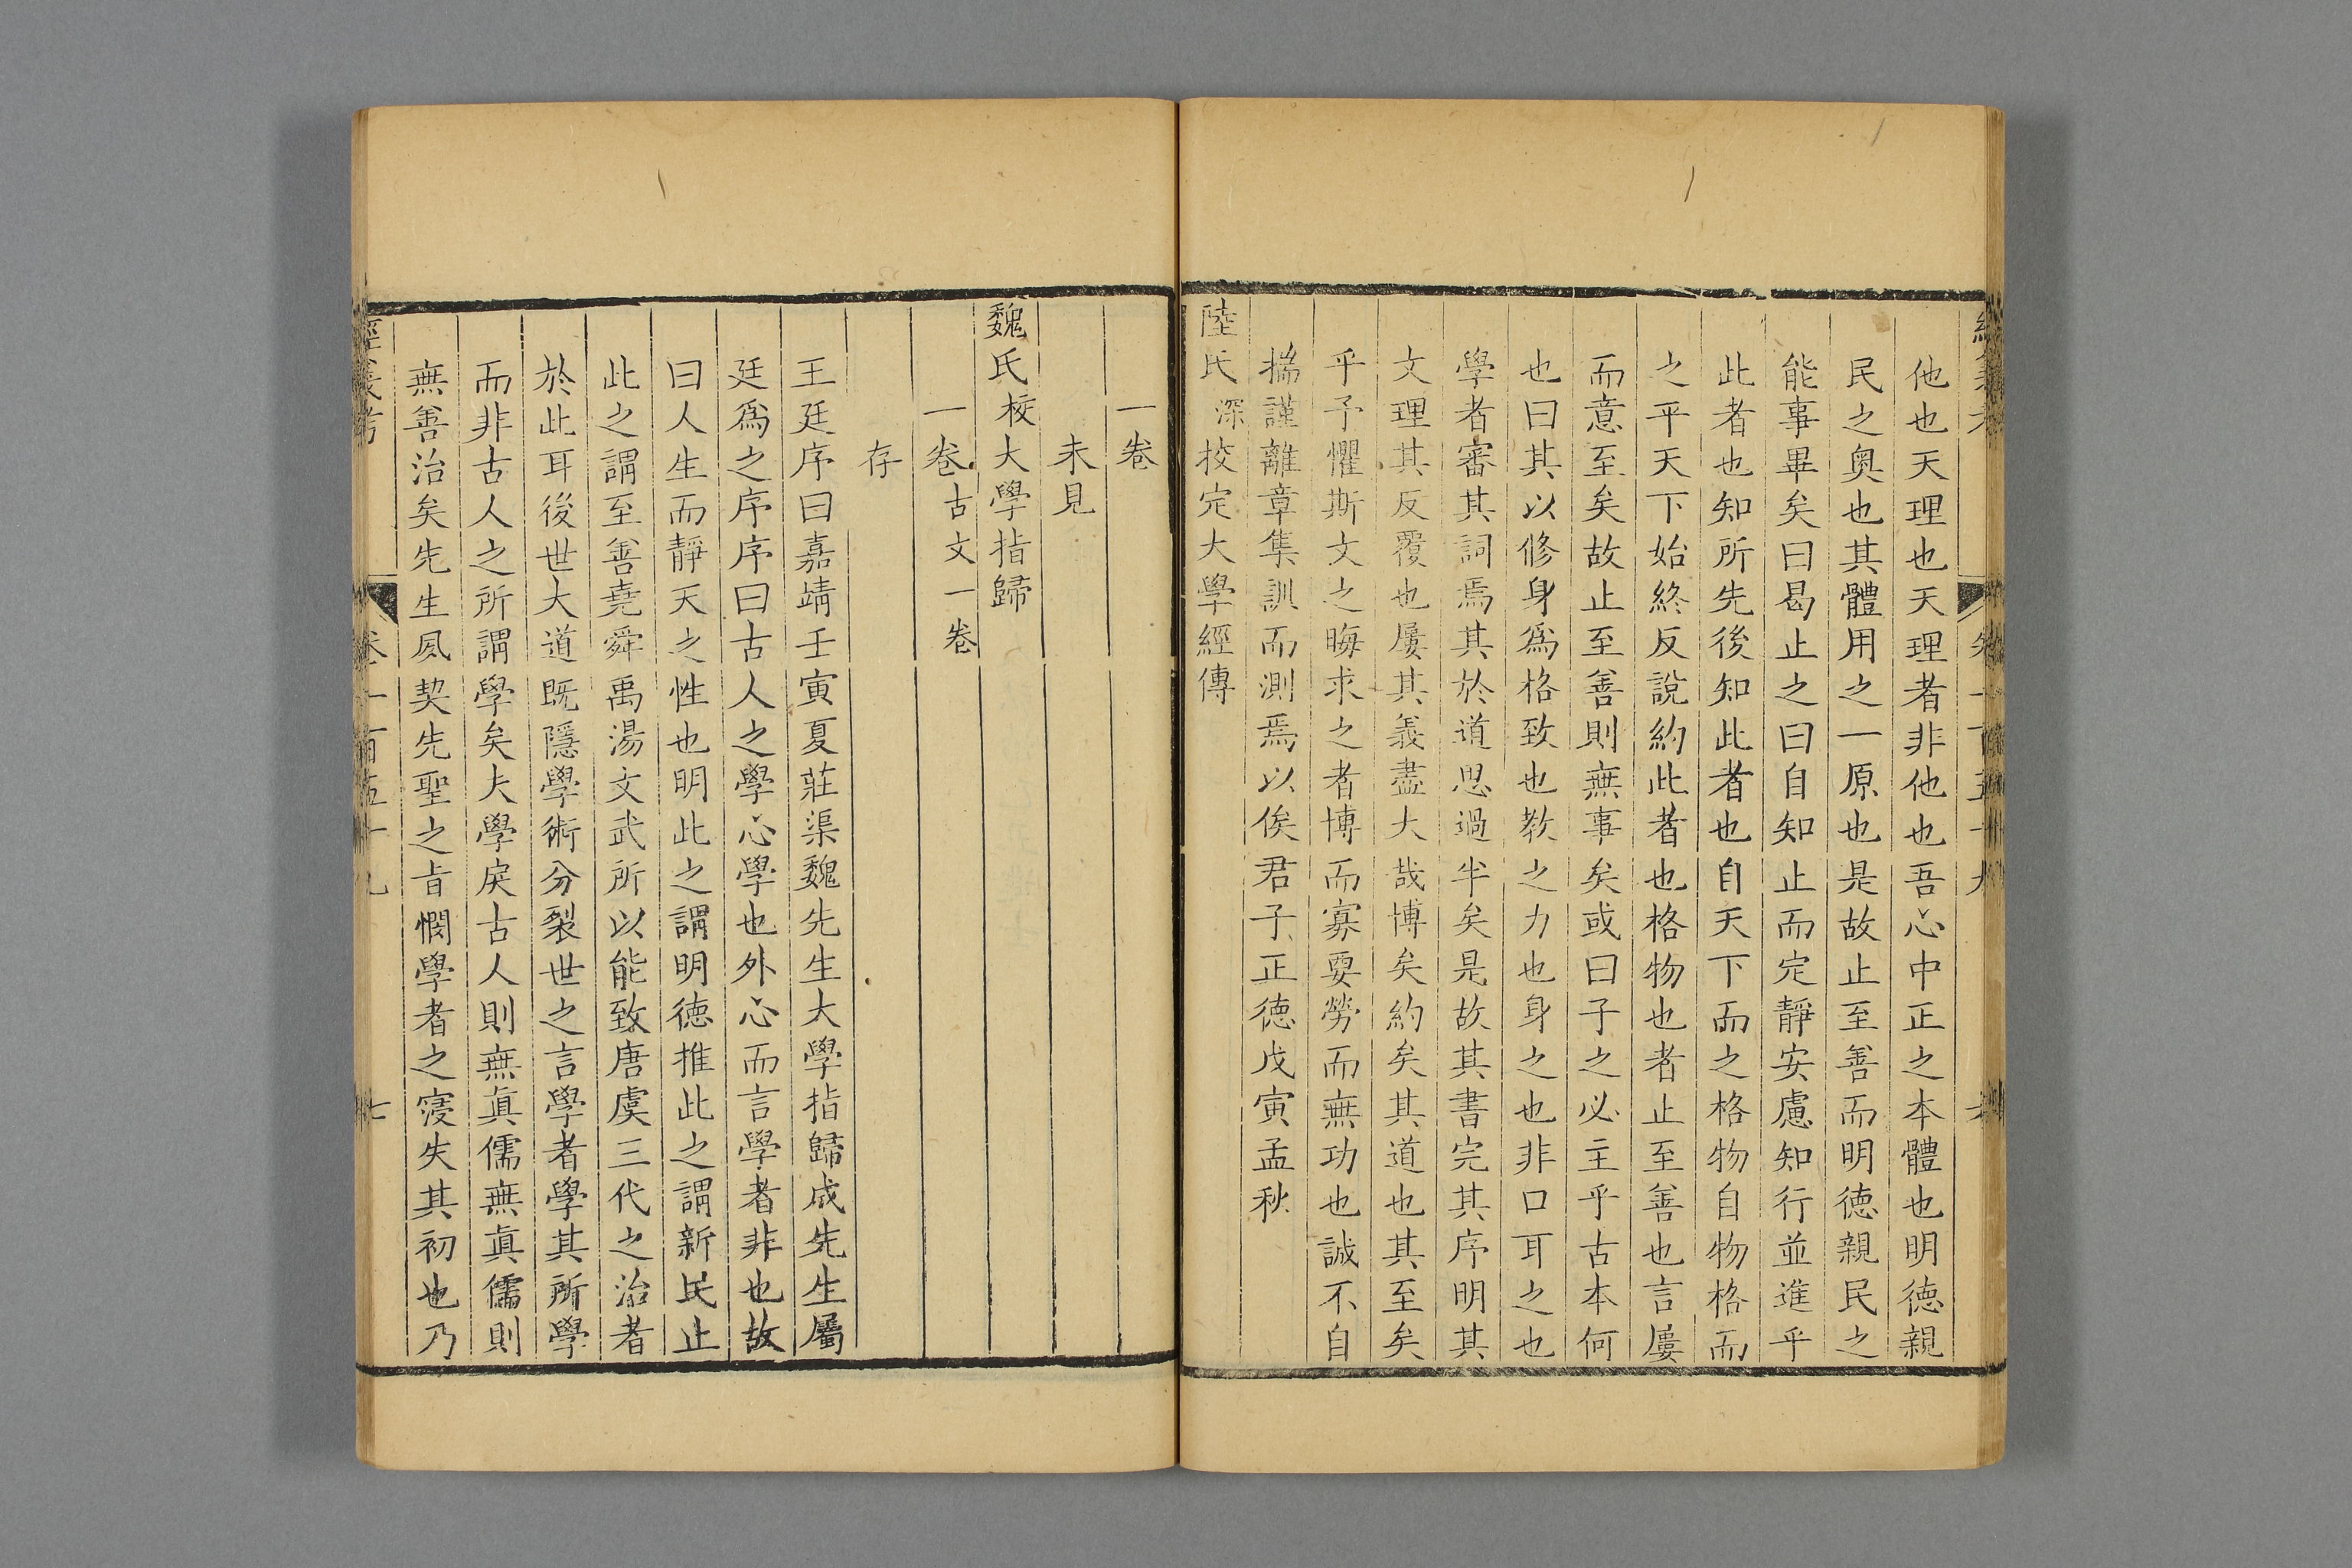 他也天理也天理者非他也吾心中正之本體也明德親
民之奧也其體用之一原也是故止至善而明德親民之
能事畢矣曰曷止之曰自知止而定靜安慮知行並進乎
此者也知所先後知此者也自天下而之格物自物格而
之平天下始終反說約此者也格物也者止至善也言屢
而意至矣故止至善則無事矣或曰子之必主乎古本何
也曰其以修身爲格致也教之力也身之也非口耳之也
學者審其詞焉其於道思過半矣是故其書完其序明其
文理其反覆也屢其義盡大哉博矣約矣其道也其至矣
乎予懼斯文之晦求之者博而寡要勞而無功也誠不自
揣謹離章集訓而測焉以俟君子正德戊寅孟秋
陸氏深校定大學經傳
一卷
未見
魏氏校大學指歸
一卷古文一卷
存
王廷序曰嘉靖壬寅夏莊渠魏先生大學指歸成先生屬
廷爲之序序曰古人之學心學也外心而言學者非也故
曰人生而靜天之性也明此之謂明德推此之謂新民止
此之謂至善堯舜禹湯文武所以能致唐虞三代之治者
於此耳後世大道既隱學術分裂世之言學者學其所學
而非古人之所謂學矣夫學戾古人則無眞儒無眞儒則
無善治矣先生夙契先聖之旨憫學者之寖失其初也乃
經義考 卷一百五十九 七